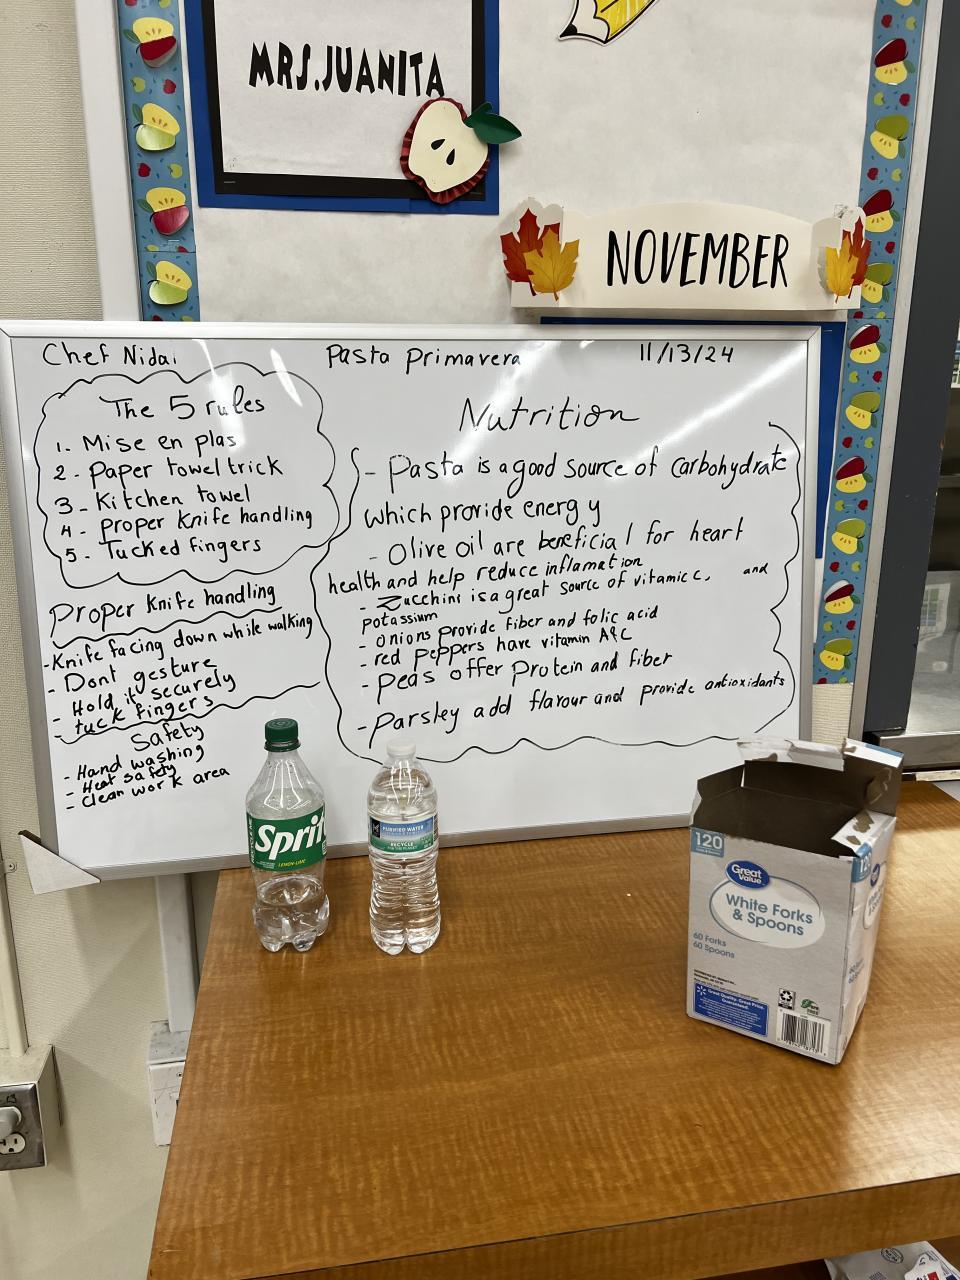 MRS.JUANITA
NOVEMBER
Chef Nidai
Pasta Primavera
11/13/24
The 5 rules
1. Mise en plas
2- Paper towel trick
3- Kitchen towel
4- Proper knife handling
5- Tucked fingers
Proper knife handling
-Knife facing down while walking
- Dont gesture
- Hold it securely
- tuck fingers
Safety
- Hand washing
- Heat safety
- Clean work area
Nutrition
- Pasta is a good source of carbohydrate
which provide energy
- Olive oil are beneficial for heart
health and help reduce inflamation
- Zucchini is a great source of vitamic c, and
potassium
- onions provide fiber and folic acid
- red peppers have vitamin A&C
- Peas offer Protein and fiber
- Parsley add flavour and provide antioxidants
Sprit
LEMON-LIME
PURIFIED WATER
RECYCLE
120
Great Value
White Forks
& Spoons
60 Forks
60 Spoons
Great Quality. Great Price.
Guaranteed.